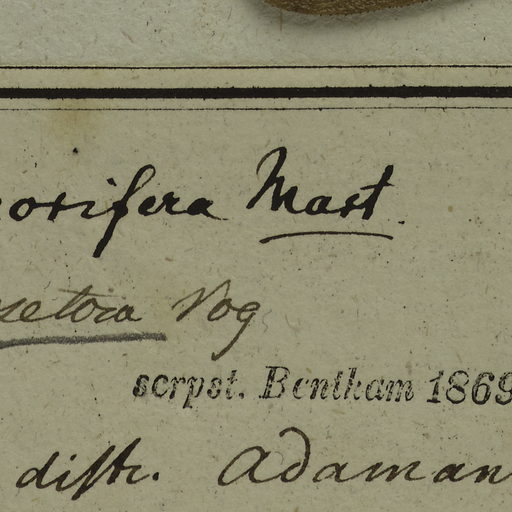 orifera Mart.
setosa Vog
scrpst. Bentham 1869
distr. Adaman